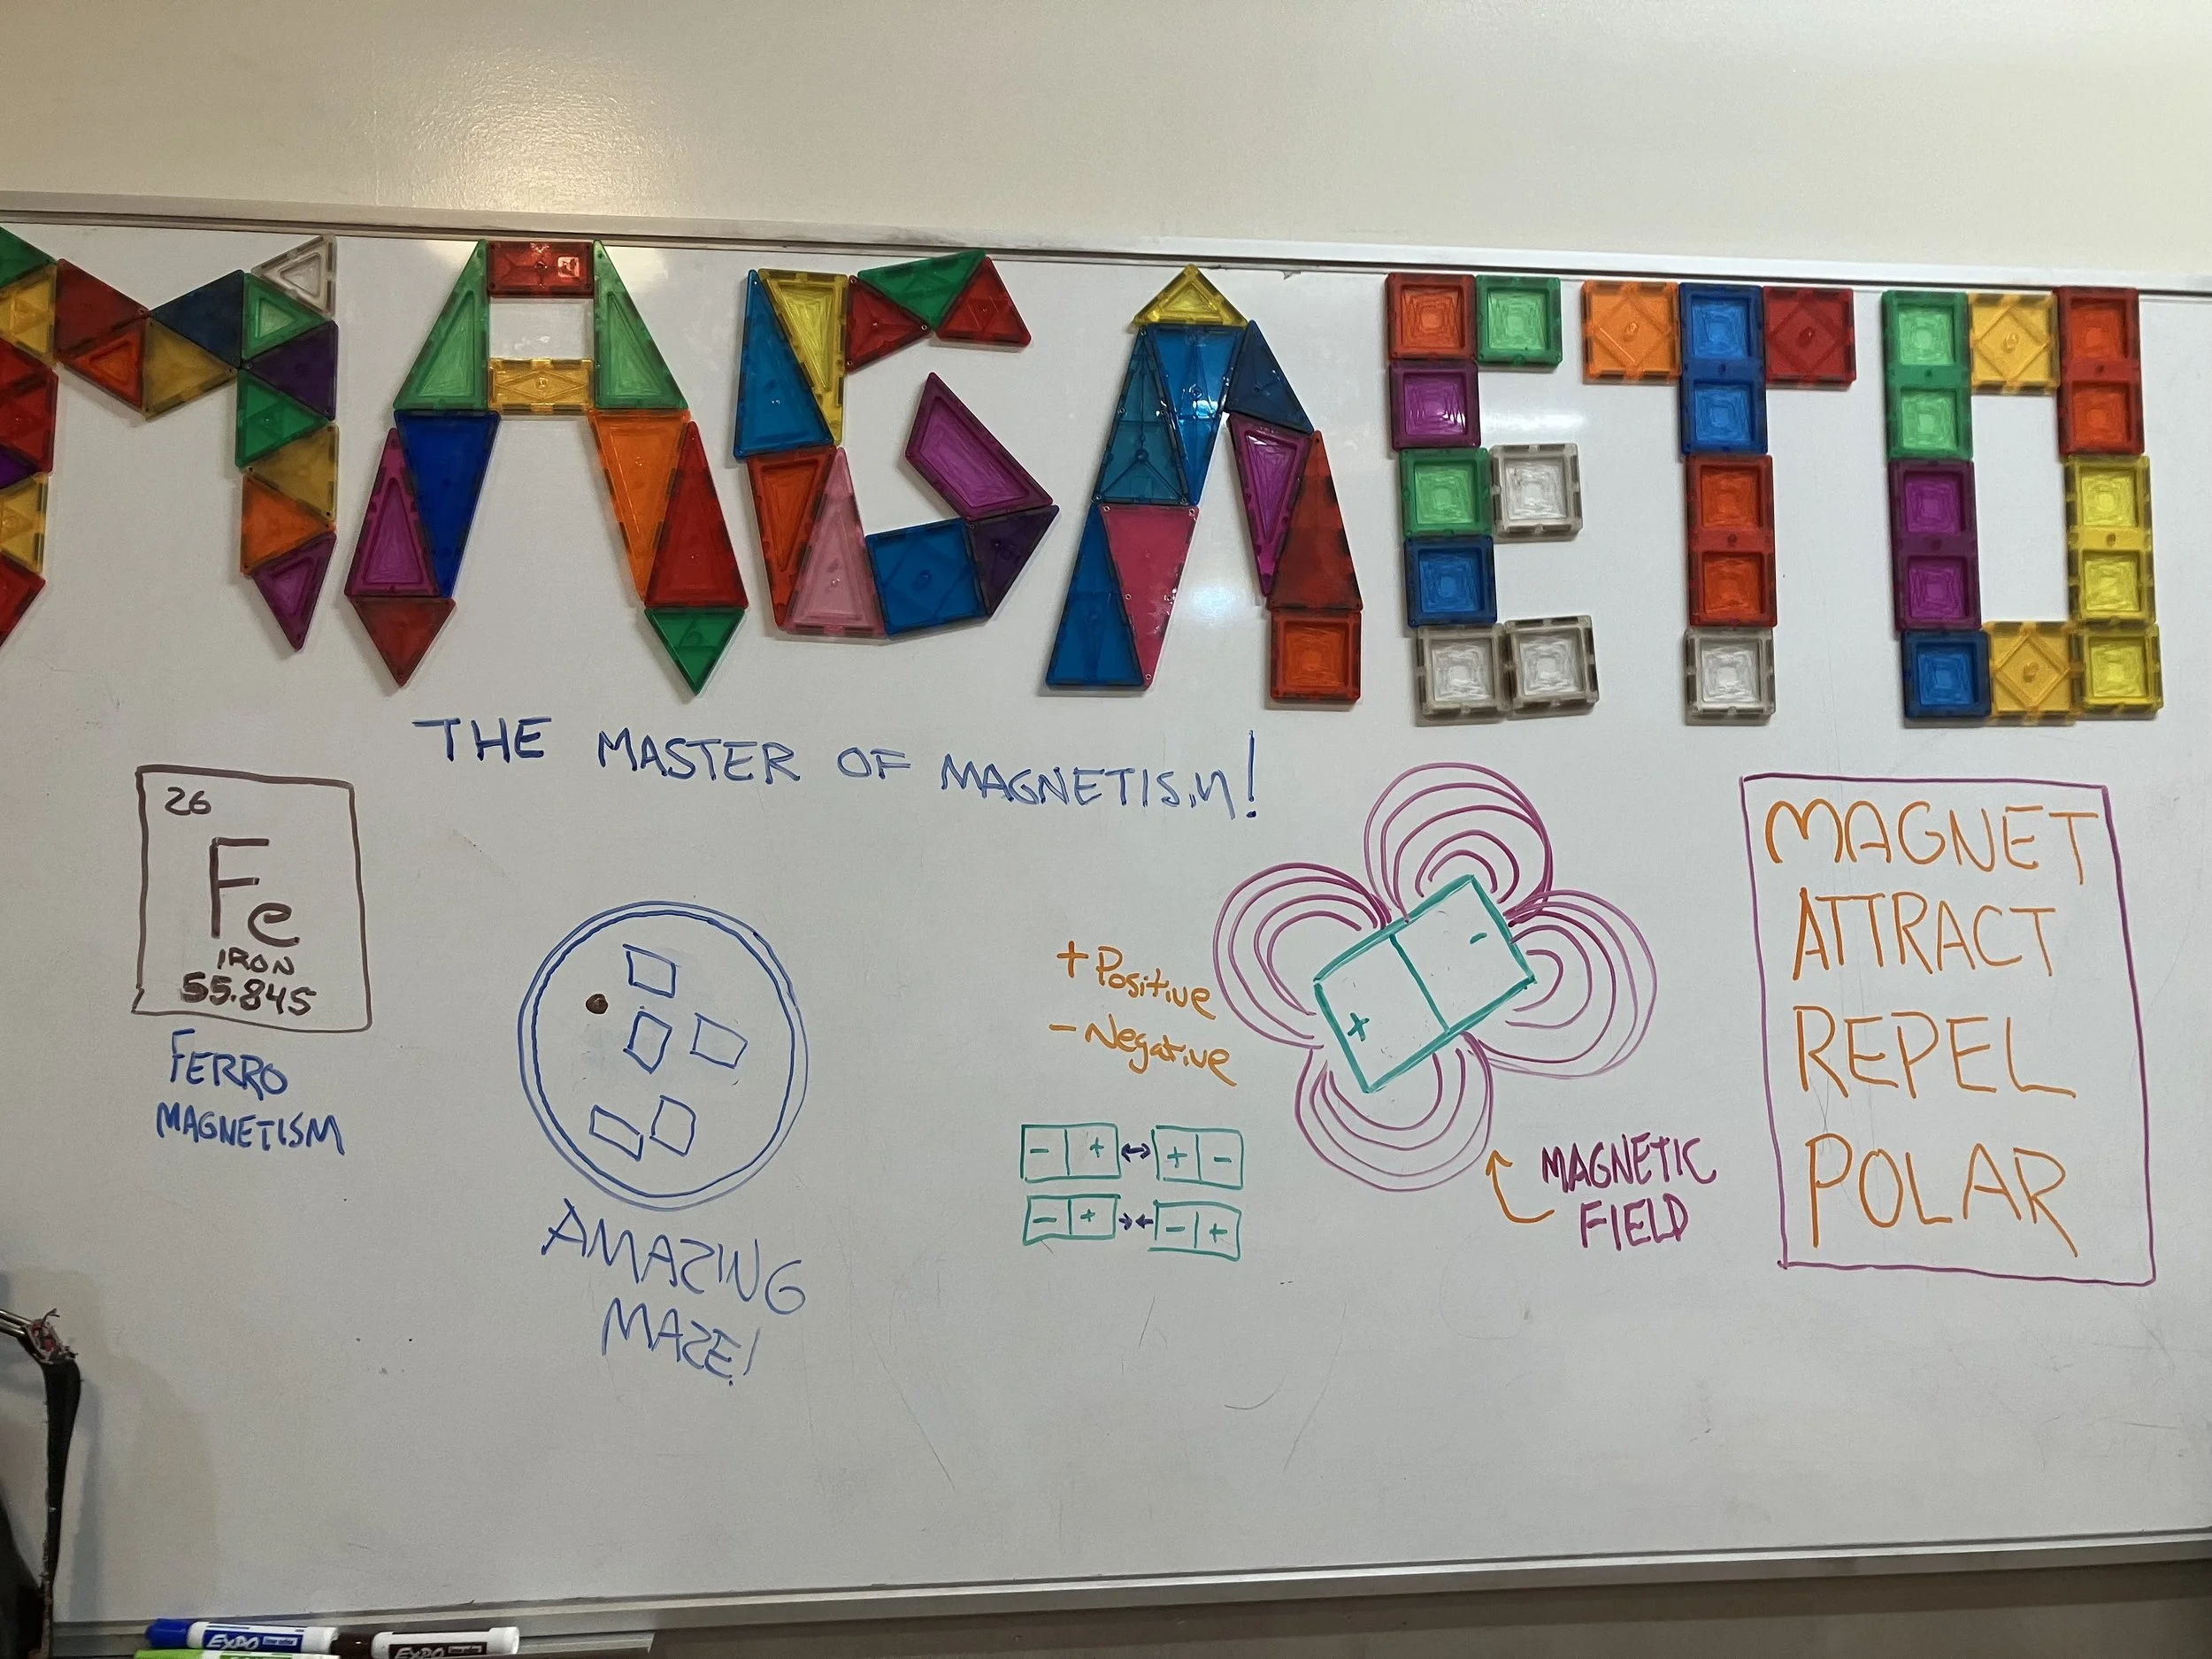 MAGNETO
THE MASTER OF MAGNETISM!
26
Fe
IRON
55.845
FERRO
MAGNETISM
AMAZING
MAZE!
+ Positive
- Negative
- + ↔ + -
- + →← - +
+ -
MAGNETIC
FIELD
MAGNET
ATTRACT
REPEL
POLAR
EXPO
EXPO